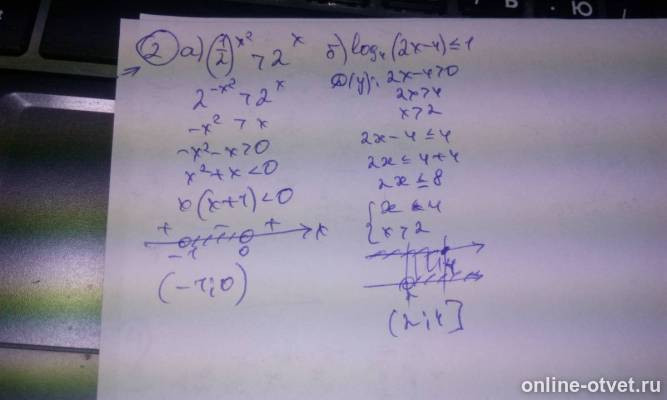 2 а) (1/2)^x² > 2^x
2^-x² > 2^x
-x² > x
-x² - x > 0
x² + x < 0
x(x+1) < 0
+ - + x
-1 0
(-1; 0)
б) log₄(2x-4) ≤ 1
D(y): 2x-4>0
2x>4
x>2
2x-4 ≤ 4
2x ≤ 4+4
2x ≤ 8
{ x ≤ 4
{ x > 2
2 4
(2; 4]
online-otvet.ru